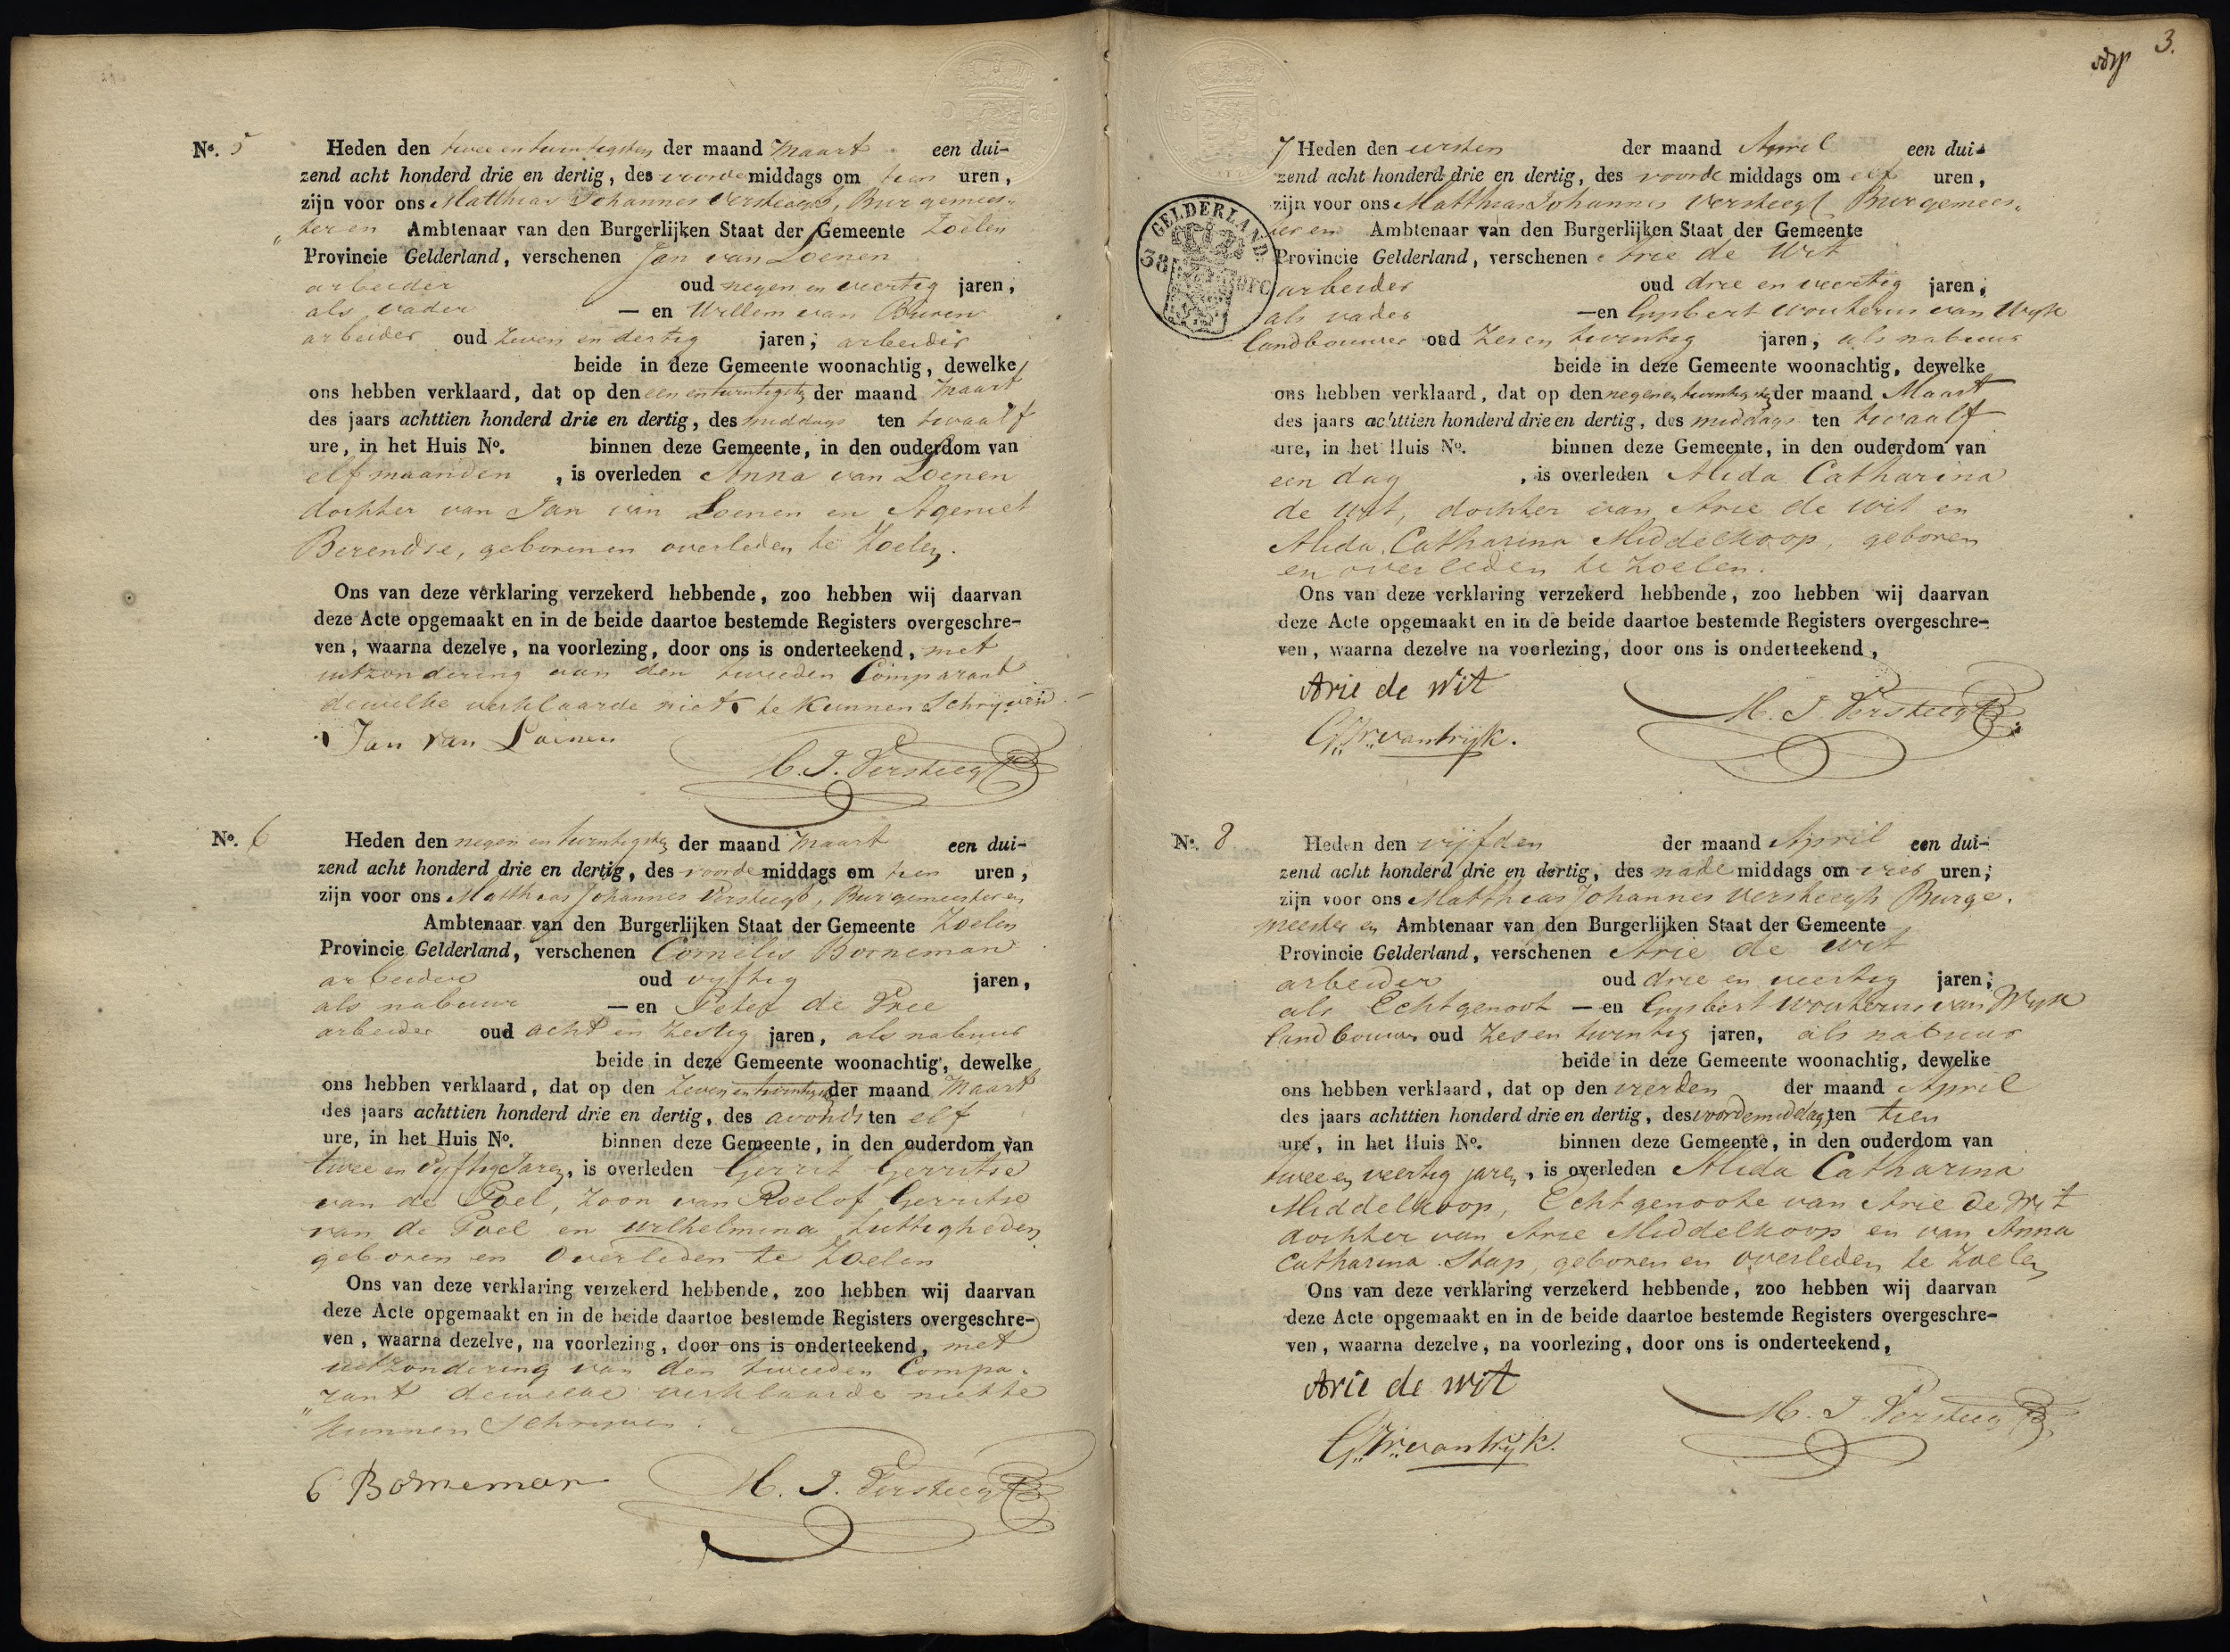 Nº. 5 Heden den twee en twintigsten der maand Maart een dui-
zend acht honderd drie en dertig, des voorde middags om tien uren,
zijn voor ons Matthias Johannes Versteegt, Burgemees-
„ter en Ambtenaar van den Burgerlijken Staat der Gemeente Zoelen
Provincie Gelderland, verschenen Jan van Loenen
arbeider oud negen en veertig jaren,
als vader — en Willem van Buren
arbeider oud zeven en dertig jaren, arbeider
beide in deze Gemeente woonachtig, dewelke
ons hebben verklaard, dat op den een en twintigste der maand Maart
des jaars achttien honderd drie en dertig, des middags ten twaalf
ure, in het Huis Nº. binnen deze Gemeente, in den ouderdom van
elf maanden, is overleden Anna van Loenen
dochter van Jan van Loenen en Ageniet
Berendse, geboren en overleden te Zoelen.
Ons van deze verklaring verzekerd hebbende, zoo hebben wij daarvan
deze Acte opgemaakt en in de beide daartoe bestemde Registers overgeschre-
ven, waarna dezelve, na voorlezing, door ons is onderteekend, met
uitzondering van den tweeden Comparant
dewelke verklaarde niet te kunnen Schrijven.
Jan van Loenen
M. J. Versteegt
Nº. 6 Heden den negen en twintigste der maand Maart een dui-
zend acht honderd drie en dertig, des voorde middags om tien uren,
zijn voor ons Matthias Johannes Versteegt, Burgemeester en
Ambtenaar van den Burgerlijken Staat der Gemeente Zoelen
Provincie Gelderland, verschenen Cornelis Borneman
arbeider oud vyftig jaren,
als nabuur — en Peter de Pree
arbeider oud acht en zestig jaren, als nabuur
beide in deze Gemeente woonachtig, dewelke
ons hebben verklaard, dat op den zeven en twintigste der maand Maart
des jaars achttien honderd drie en dertig, des avonds ten elf
ure, in het Huis Nº. binnen deze Gemeente, in den ouderdom van
twee en vyftig Jaren, is overleden Gerrit Gerritse
van de Poel, zoon van Roelof Gerritse
van de Poel en Wilhelmina
geboren en Overleden te Zoelen
Ons van deze verklaring verzekerd hebbende, zoo hebben wij daarvan
deze Acte opgemaakt en in de beide daartoe bestemde Registers overgeschre-
ven, waarna dezelve, na voorlezing, door ons is onderteekend, met
uitzondering van den tweeden Compa-
„rant dewelke verklaarde niet te
kunnen Schryven.
C Borneman
M. J. Versteegt
3.
7 Heden den eersten der maand April een dui-
zend acht honderd drie en dertig, des voorde middags om elf uren,
zijn voor ons Matthias Johannes Versteegt Burgemees-
ter en Ambtenaar van den Burgerlijken Staat der Gemeente
GELDERLAND.
Provincie Gelderland, verschenen Arie de Wit
arbeider oud drie en veertig jaren,
als vader — en Gysbert Wouterus van Wyk
landbouwer oud zes en twintig jaren, als nabuur
beide in deze Gemeente woonachtig, dewelke
ons hebben verklaard, dat op den negen en twintigste der maand Maart
des jaars achttien honderd drie en dertig, des middags ten twaalf
ure, in het Huis Nº. binnen deze Gemeente, in den ouderdom van
een dag, is overleden Alida Catharina
de Wit, dochter van Arie de Wit en
Alida Catharina Middelkoop, geboren
en overleden te Zoelen.
Ons van deze verklaring verzekerd hebbende, zoo hebben wij daarvan
deze Acte opgemaakt en in de beide daartoe bestemde Registers overgeschre-
ven, waarna dezelve na voorlezing, door ons is onderteekend,
Arie de Wit
M. J. Versteegt
G. W. van Wijk.
Nº. 8 Heden den vijfden der maand April een dui-
zend acht honderd drie en dertig, des nade middags om vier uren,
zijn voor ons Matthias Johannes Versteegh Burge-
meester en Ambtenaar van den Burgerlijken Staat der Gemeente
Provincie Gelderland, verschenen Arie de Wit
arbeider oud drie en veertig jaren,
als Echtgenoot — en Gysbert Wouterus van Wyk
landbouwer oud zes en twintig jaren, als nabuur
beide in deze Gemeente woonachtig, dewelke
ons hebben verklaard, dat op den vierden der maand April
des jaars achttien honderd drie en dertig, des voordemiddags ten tien
ure, in het Huis Nº. binnen deze Gemeente, in den ouderdom van
twee en veertig jaren, is overleden Alida Catharina
Middelkoop, Echtgenoote van Arie de Wit
dochter van Arie Middelkoop en van Anna
Catharina Stap, geboren en overleden te Zoelen
Ons van deze verklaring verzekerd hebbende, zoo hebben wij daarvan
deze Acte opgemaakt en in de beide daartoe bestemde Registers overgeschre-
ven, waarna dezelve, na voorlezing, door ons is onderteekend,
Arie de Wit
M. J. Versteegt
G. W. van Wijk.